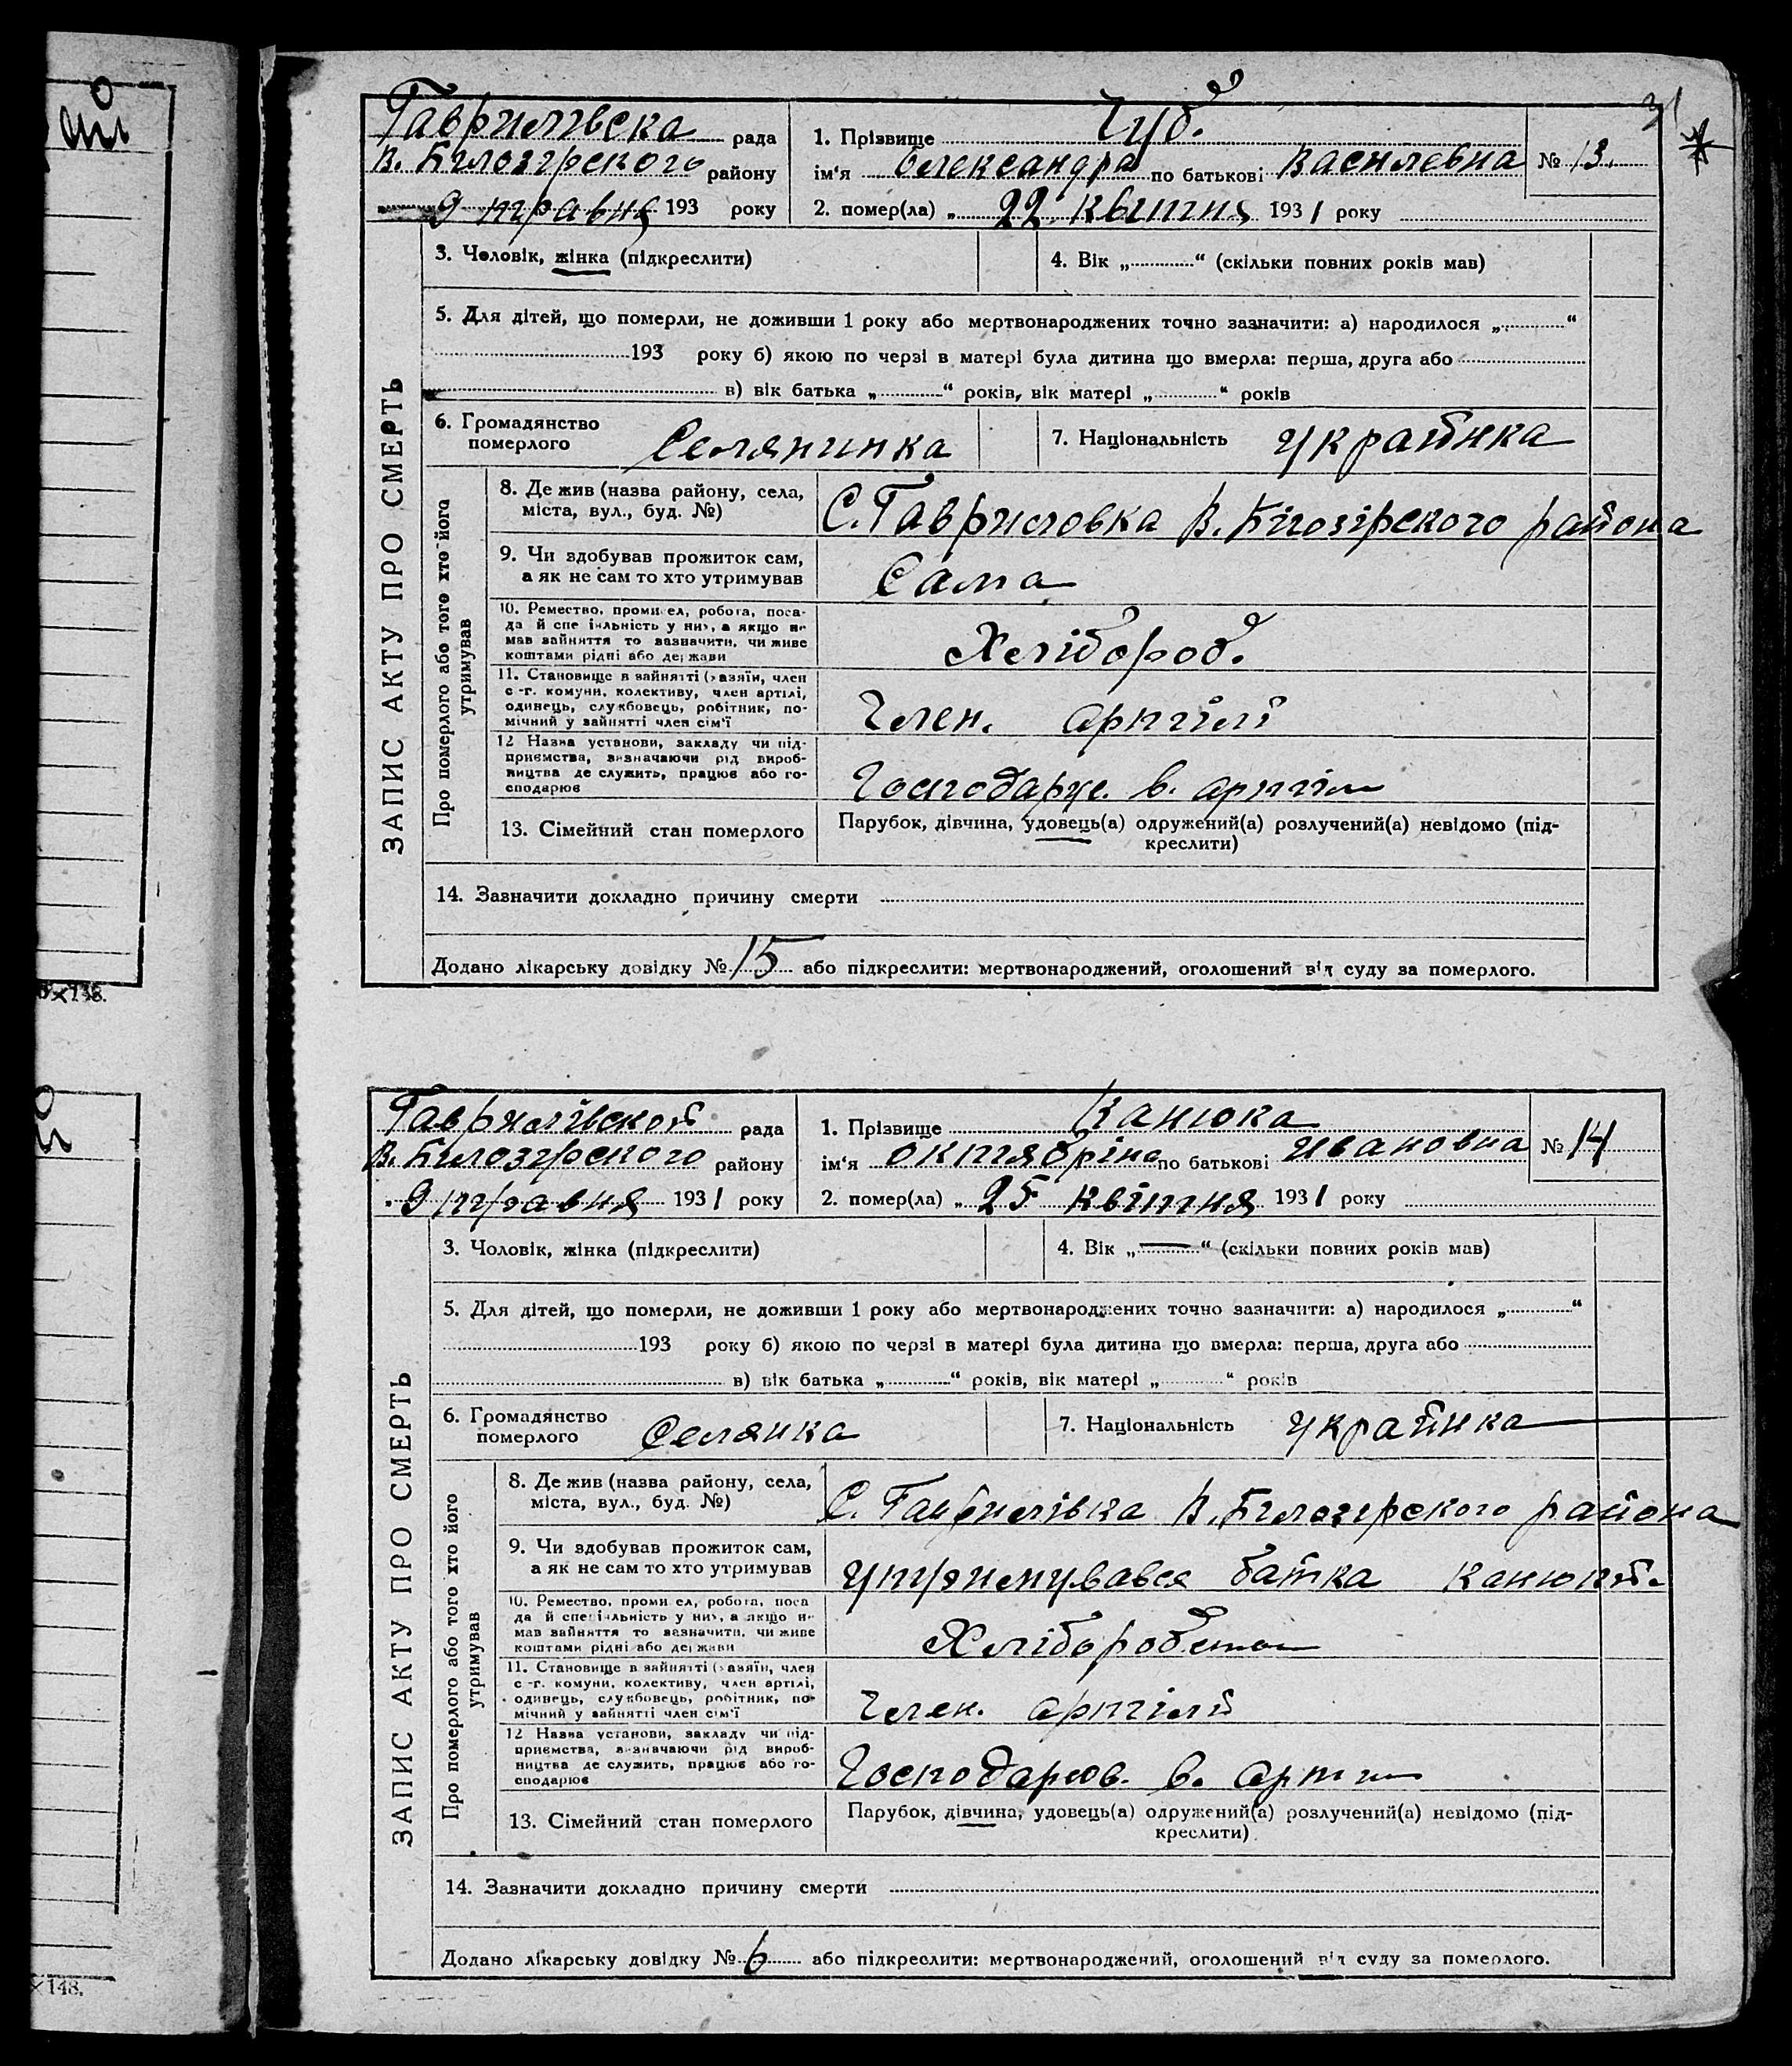 31
Гаврилівска рада
В. Білозірского району
9 травня 193 року
1. Прізвище Чуб.
ім‘я Олександра по батькові Василевна
№ 13.
2. помер(ла) „ 22 квитня 1931 року
ЗАПИС АКТУ ПРО СМЕРТЬ
3. Чоловік, жінка (підкреслити)
4. Вік „ “ (скільки повних років мав)
5. Для дітей, що померли, не доживши 1 року або мертвонароджених точно зазначити: а) народилося „ “
193 року б) якою по черзі в матері була дитина що вмерла: перша, друга або
в) вік батька „ “ років, вік матері „ “ років
6. Громадянство померлого Селянинка
7. Національність украйнка
Про померлого або того хто його утримував
8. Де жив (назва району, села,
міста, вул., буд. №)
С. Гавриловка В. Білозірского района
9. Чи здобував прожиток сам,
а як не сам то хто утримував
Сама
10. Ремество, промисел, робота, поса-
да й спеціяльність у них, а якщо не
мав зайняття то зазначити, чи живе
коштами рідні або держави
Хлібороб.
11. Становище в зайнятті (хазяїн, член
с.-г. комуни, колективу, член артілі,
одинець, службовець, робітник, по-
мічний у зайнятті член сім‘ї
Член. артілі
12 Назва установи, закладу чи під-
приємства, визначаючи рід вироб-
ництва де служить, працює або го-
сподарює
Господарує. в. артіли
13. Сімейний стан померлого
Парубок, дівчина, удовець(а) одружений(а) розлучений(а) невідомо (під-
креслити)
14. Зазначити докладно причину смерти
Додано лікарську довідку № 15 або підкреслити: мертвонароджений, оголошений від суду за померлого.
Гаврилівской рада
В. Білозірского району
9 травня 1931 року
1. Прізвище Канюка
ім‘я Октябріна по батькові Ивановна
№ 14
2. помер(ла) „ 25 квітня 1931 року
ЗАПИС АКТУ ПРО СМЕРТЬ
3. Чоловік, жінка (підкреслити)
4. Вік „ — “ (скільки повних років мав)
5. Для дітей, що померли, не доживши 1 року або мертвонароджених точно зазначити: а) народилося „ “
193 року б) якою по черзі в матері була дитина що вмерла: перша, друга або
в) вік батька „ “ років, вік матері „ “ років
6. Громадянство померлого Селянка
7. Національність украйнка
Про померлого або того хто його утримував
8. Де жив (назва району, села,
міста, вул., буд. №)
С. Гаврилівка В. Білозірского района
9. Чи здобував прожиток сам,
а як не сам то хто утримував
утримувався батка
10. Ремество, промисел, робота, поса
да й спеціяльність у них, а якщо не
мав зайняття то зазначити, чи живе
коштами рідні або держави
11. Становище в зайнятті (хазяїн, член
с.-г. комуни, колективу, член артілі,
одинець, службовець, робітник, по-
мічний у зайнятті член сім‘ї
Член. артілі
12 Назва установи, закладу чи під-
приємства, визначаючи рід вироб-
ництва де служить, працює або го-
сподарює
Господарюв. в. артили
13. Сімейний стан померлого
Парубок, дівчина, удовець(а) одружений(а) розлучений(а) невідомо (під-
креслити)
14. Зазначити докладно причину смерти
Додано лікарську довідку № 6 або підкреслити: мертвонароджений, оголошений від суду за померлого.
×148.